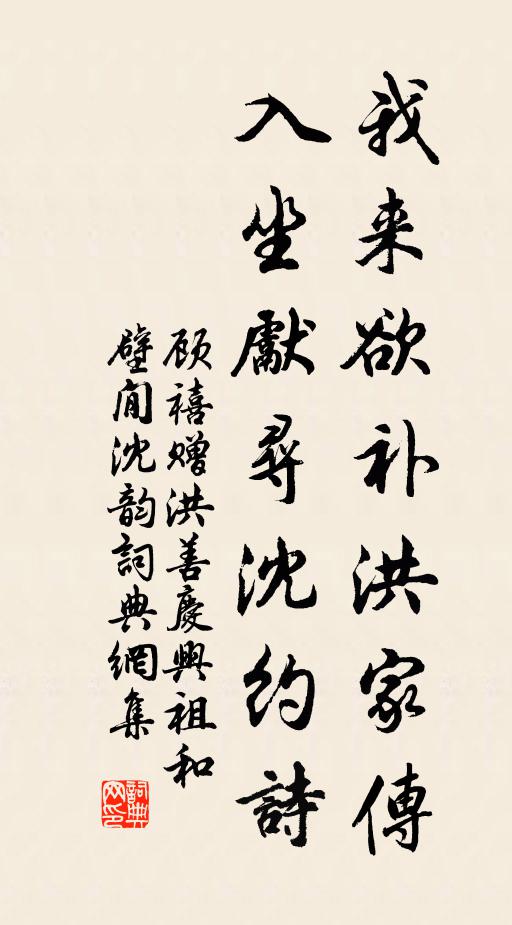 我来欲补洪家傳
入坐獻尋沈約詩
顾禧赠洪善慶興祖和
壁间沈韵詞典網集
詞典网印